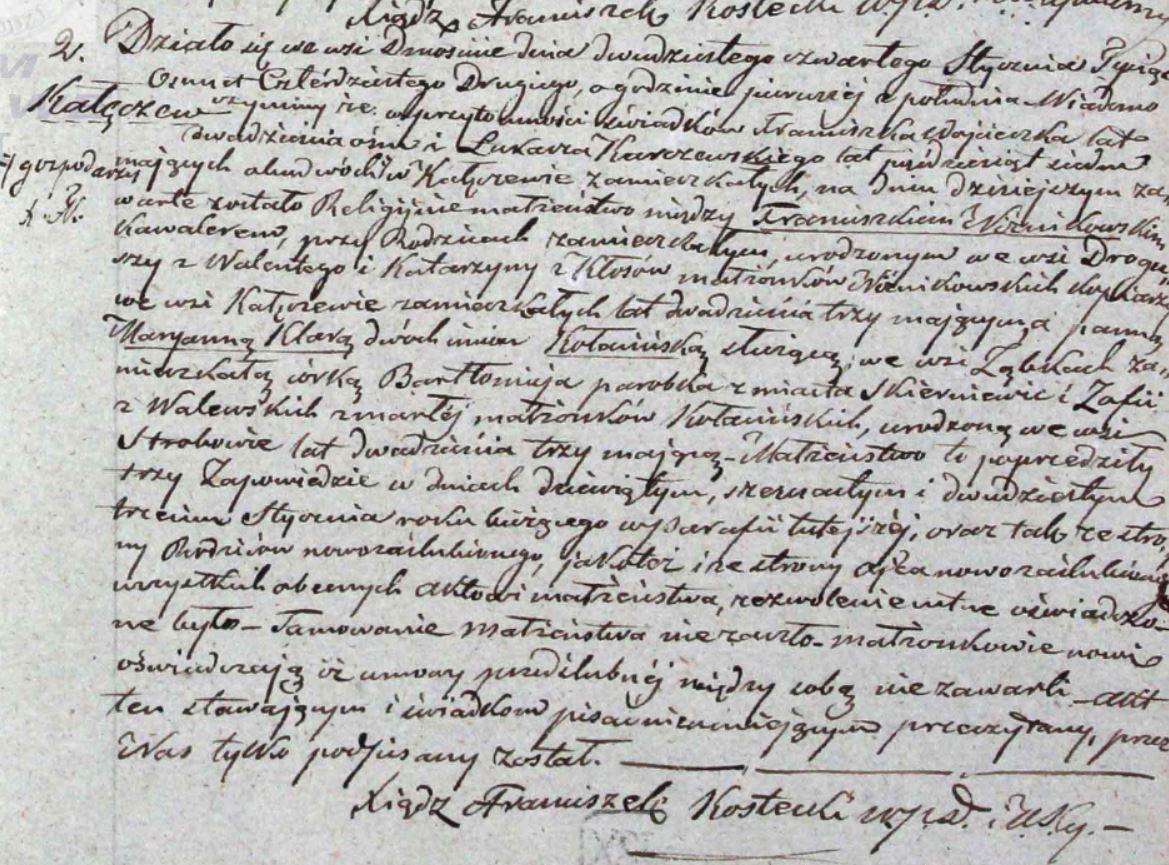 Xiądz Franciszek Kostecki
2. Działo się we wsi Dmosinie dnia dwudziestego czwartego Stycznia Tysiąc
Osmset Czterdziestego Drugiego, o godzinie pierwszej z południa. Wiadomo
Kałęczew czynimy że w przytomności świadków Franciszka Wojcieczka lat
dwadzieścia ośm i Łukasza Karczewskiego lat pięćdziesiąt siedm
gospodarzy mających obudwóch w Kałęczewie zamieszkałych, na dniu dzisiejszym za-
X. Fr. warte zostało Religijne małżeństwo między Franciszkiem Woznikowskim
Kawalerem, przy Rodzicach zamieszkałym, urodzonym we wsi
szy z Walentego i Katarzyny z Kłosów małżonków Woznikowskich
we wsi Kałęczewie zamieszkałych lat dwadzieścia trzy mającym a panną
Maryanną Klarą dwóch imion Kołacińską służącą, we wsi Ząbkach za-
mieszkałą córką Bartłomieja parobka z miasta Skierniewic i Zofii
z Walewskich zmarłej małżonków Kołacińskich, urodzoną we wsi
Strobowie lat dwadzieścia trzy mającą - Małżeństwo to poprzedziły
trzy Zapowiedzie w dniach dziewiątym, szesnastym i dwudziestym
trzecim Stycznia roku bieżącego w Parafii tutejszéj, oraz tak ze stro-
ny Rodziców nowozaślubionego, jakoteż i ze strony ojca nowozaślubionéj
wszystkich obecnych aktowi małżeństwa, zezwolenie ustne oświadczo-
ne było - Tamowanie małżeństwa nie zaszło - małżonkowie nowi
oświadczają iż umowy przedślubnéj między sobą nie zawarli - akt
ten stawającym i świadkom pisać nieumiejącym przeczytany, przez
Nas tylko podpisany został.
Xiądz Franciszek Kostecki